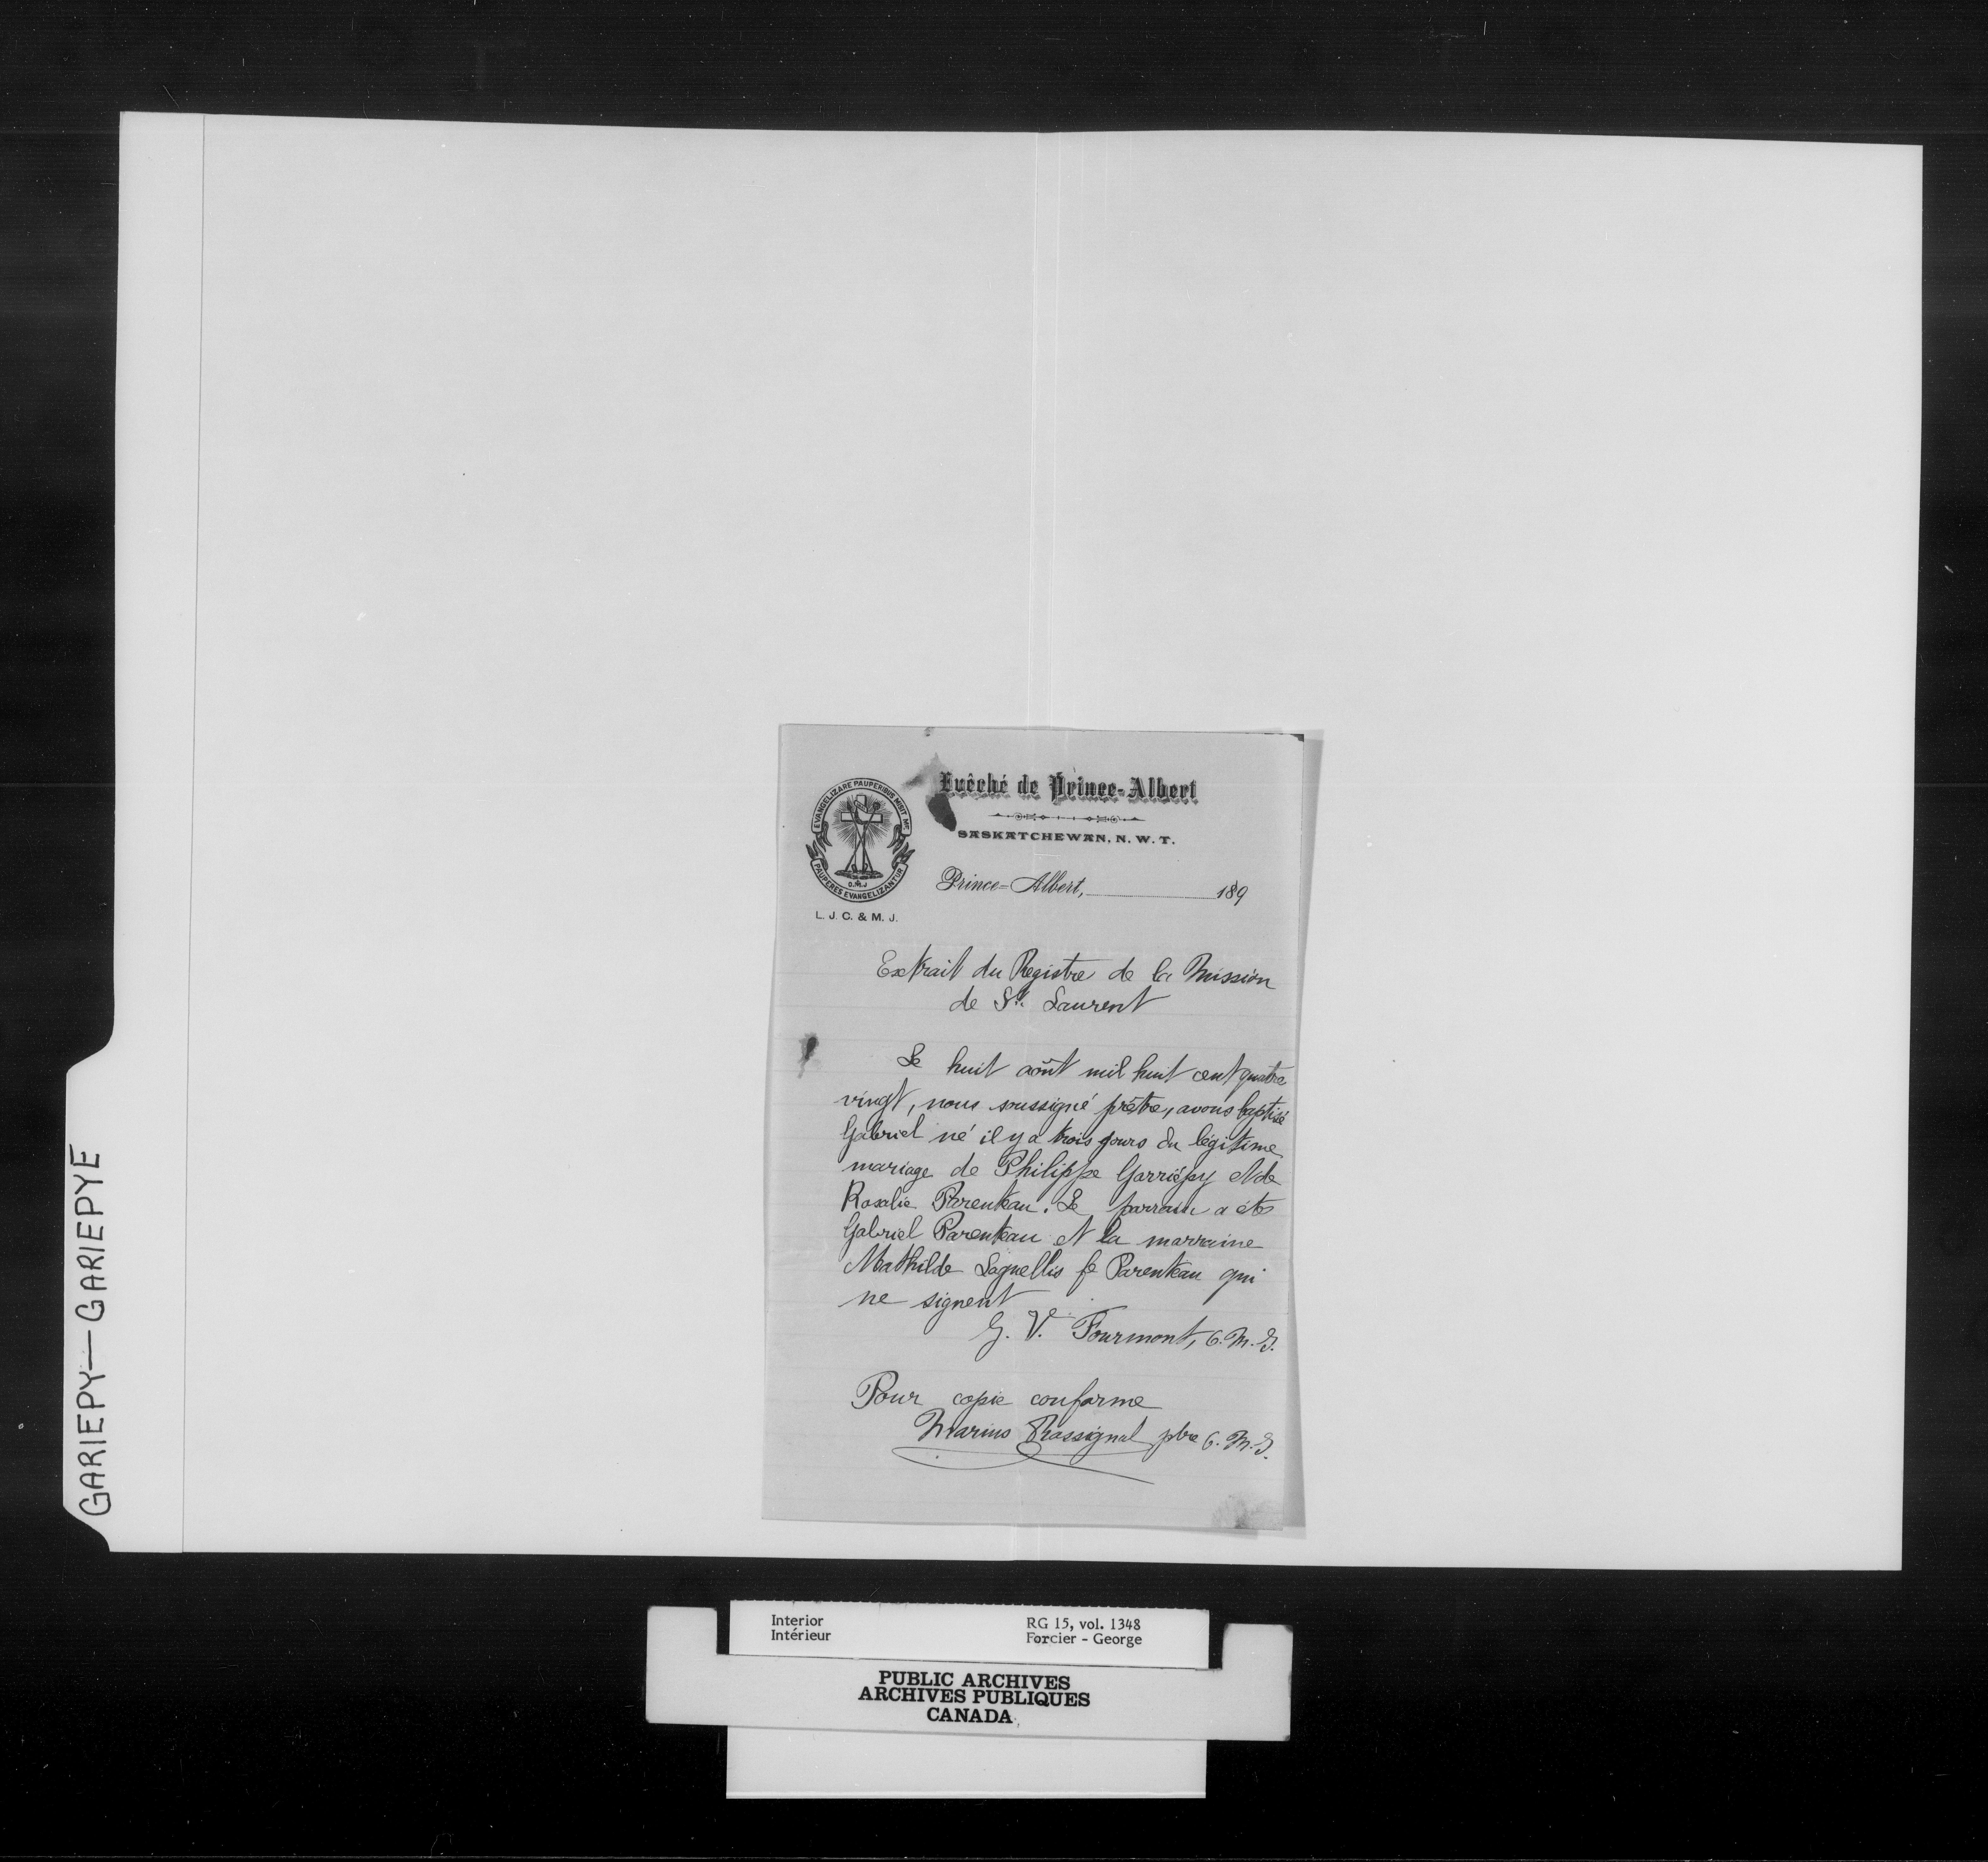 GARIEPY—GARIEPYE
EVANGELIZARE PAUPERIBUS MISIT ME
PAUPERES EVANGELIZANTUR
O.M.J
L. J. C. & M. J.
Evêché de Prince-Albert
SASKATCHEWAN, N. W. T.
Prince=Albert, 189
Extrait du Registre de la Mission
de St. Laurent
Le huit août mil huit cent quatre
vingt, nous soussigné prêtre, avons baptisé
Gabriel né il y a trois jours du légitime
mariage de Philippe Garriépy et de
Rosalie Parenteau. Le parrain a été
Gabriel Parenteau et la marraine
Mathilde Laquellis fe Parenteau qui
ne signent
G. V. Fourmont, O. M. J.
Pour copie conforme
Marius Rossignol ptre O. M. J.
Interior
Intérieur
RG 15, vol. 1348
Forcier - George
PUBLIC ARCHIVES
ARCHIVES PUBLIQUES
CANADA